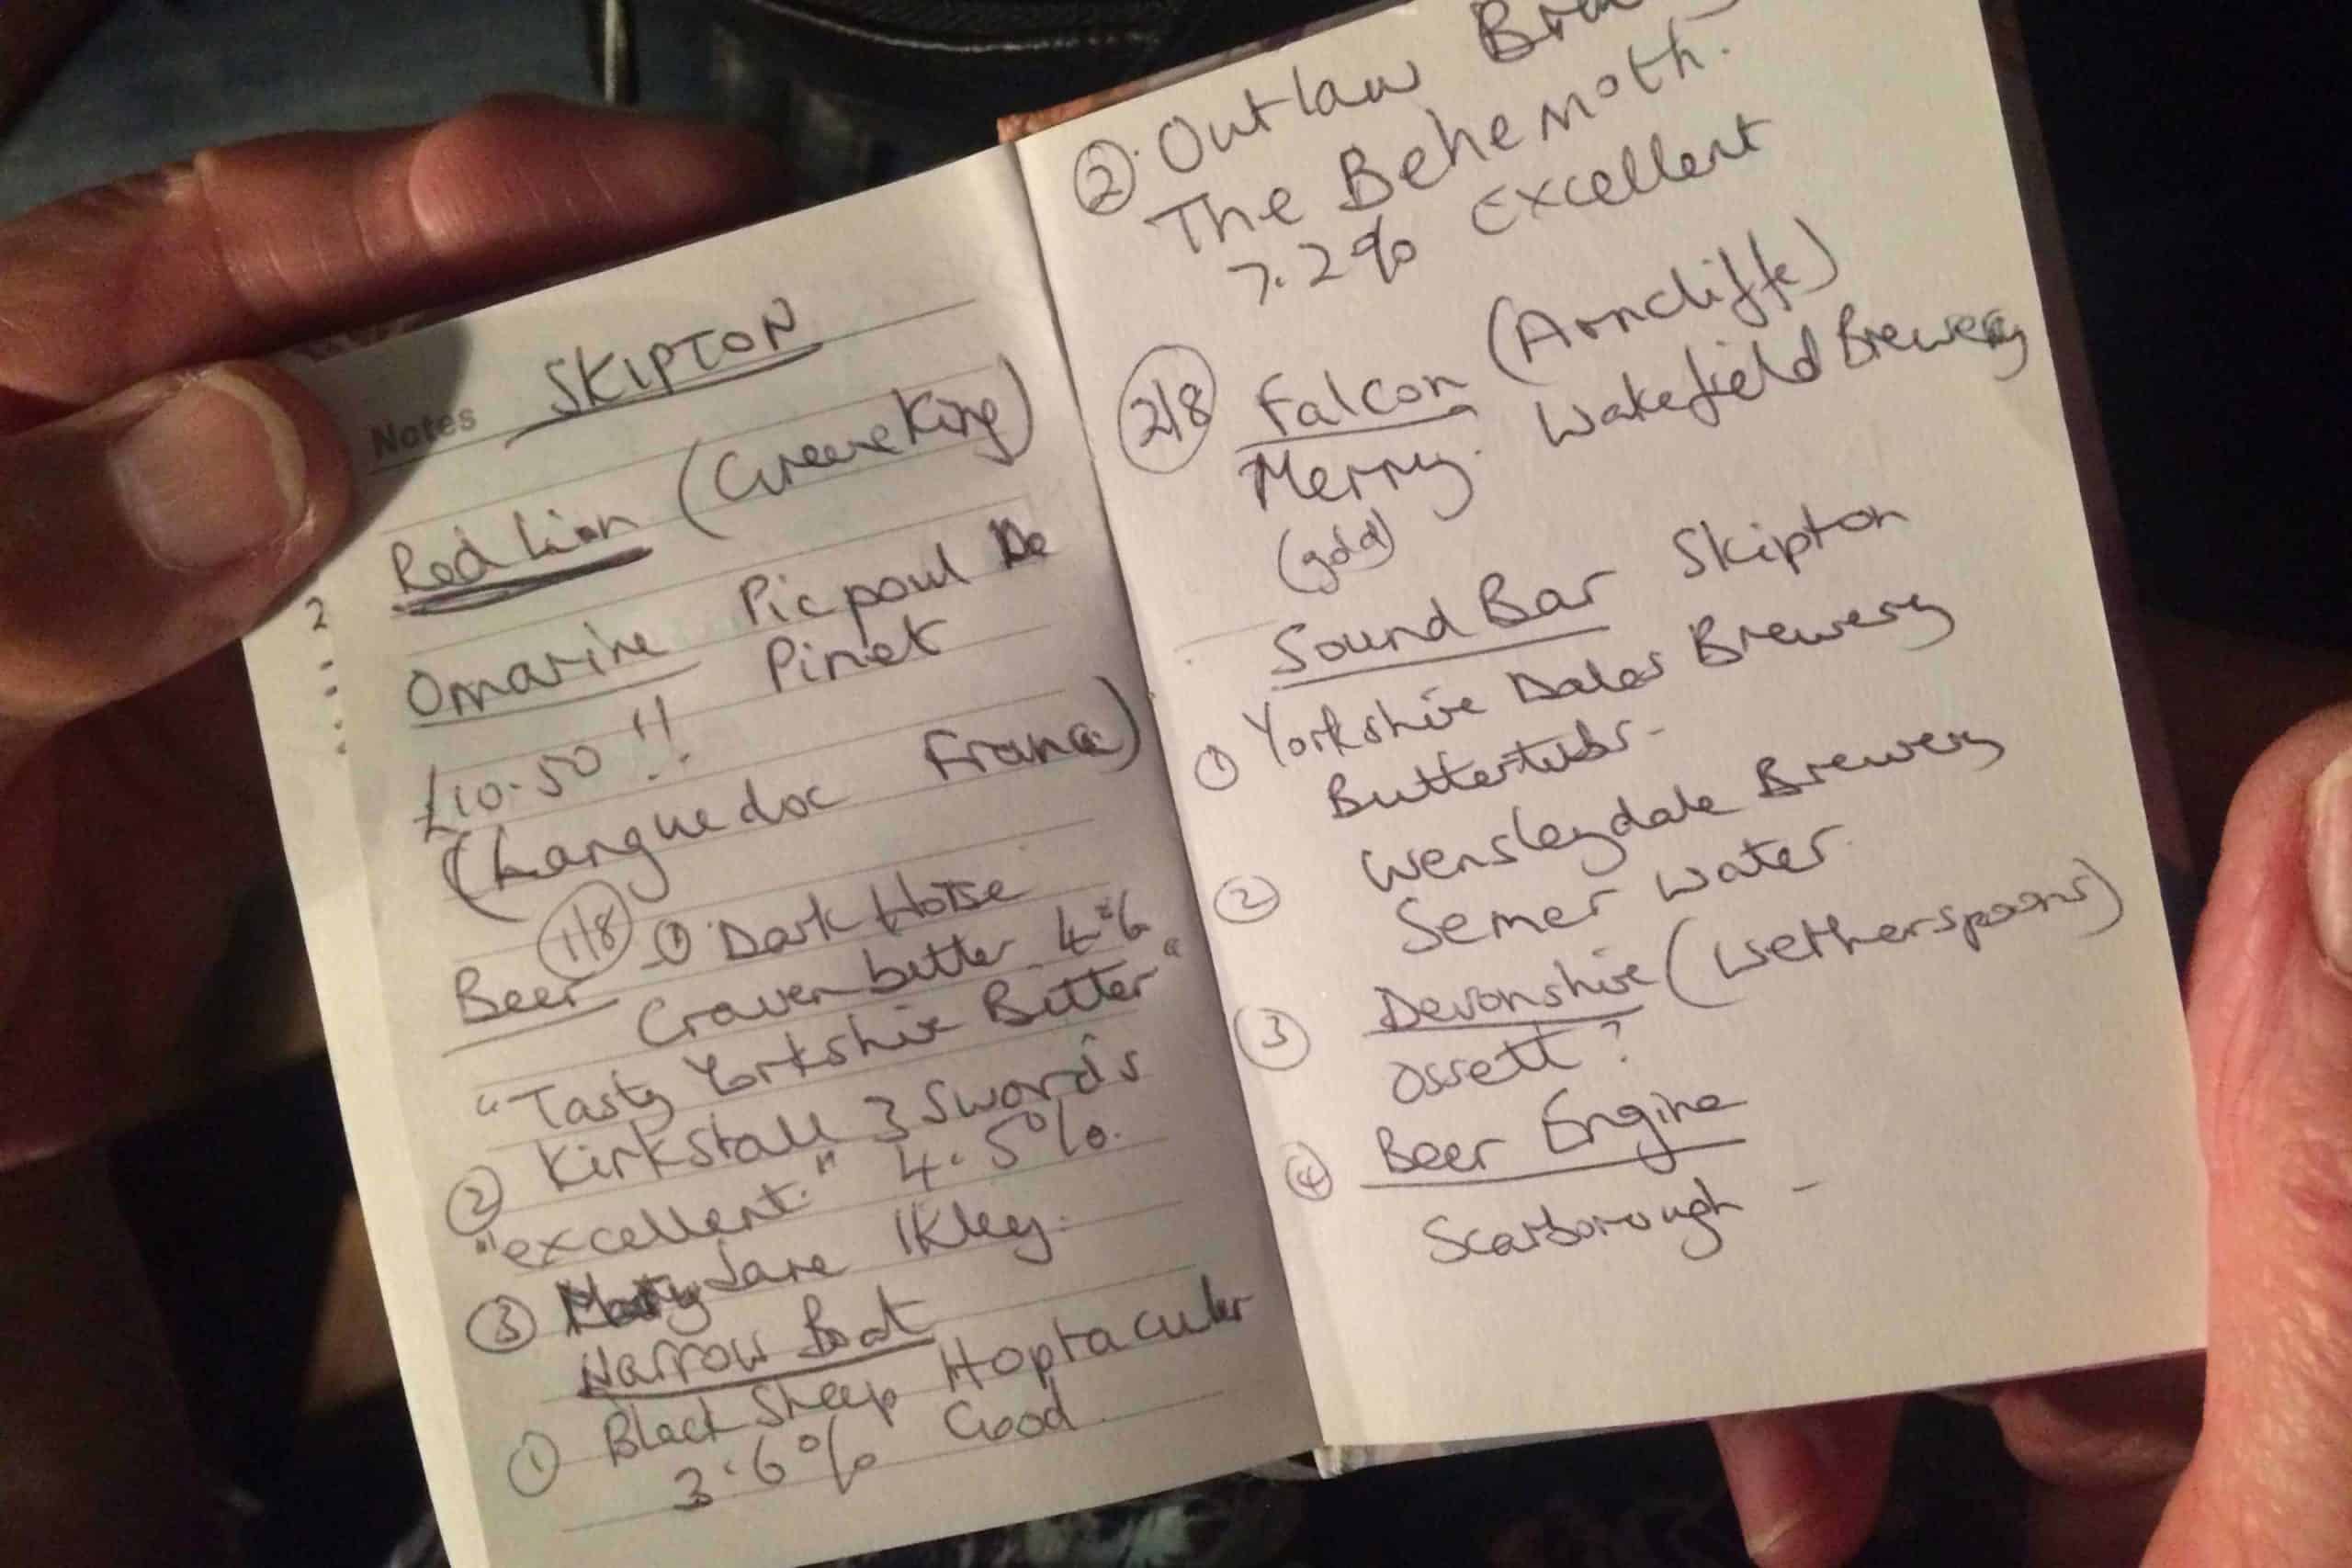 Notes SKIPTON
Red Lion (Greene King)
Omarine Picpoul De
Pinet
£10.50 !!
(Languedoc France)
Beer 1/8 ① Dark Horse
Craven bitter 4.6
"Tasty Yorkshire Bitter"
② Kirkstall 3 Swords
"excellent." 4.5%.
③ Mary Jane Ikley.
Narrow Boat
① Black Sheep Hoptacular
3.6% Good.
2
② Outlaw
The Behemoth.
7.2% Excellent
2/8 Falcon (Arncliffe)
Merry. Wakefield Brewery
(gold)
Sound Bar Skipton
① Yorkshire Dales Brewery
Buttertubs-
Wensleydale Brewery
② Semer Water.
Devonshire (Wetherspoons)
③ Ossett?
Beer Engine
④ Scarborough -